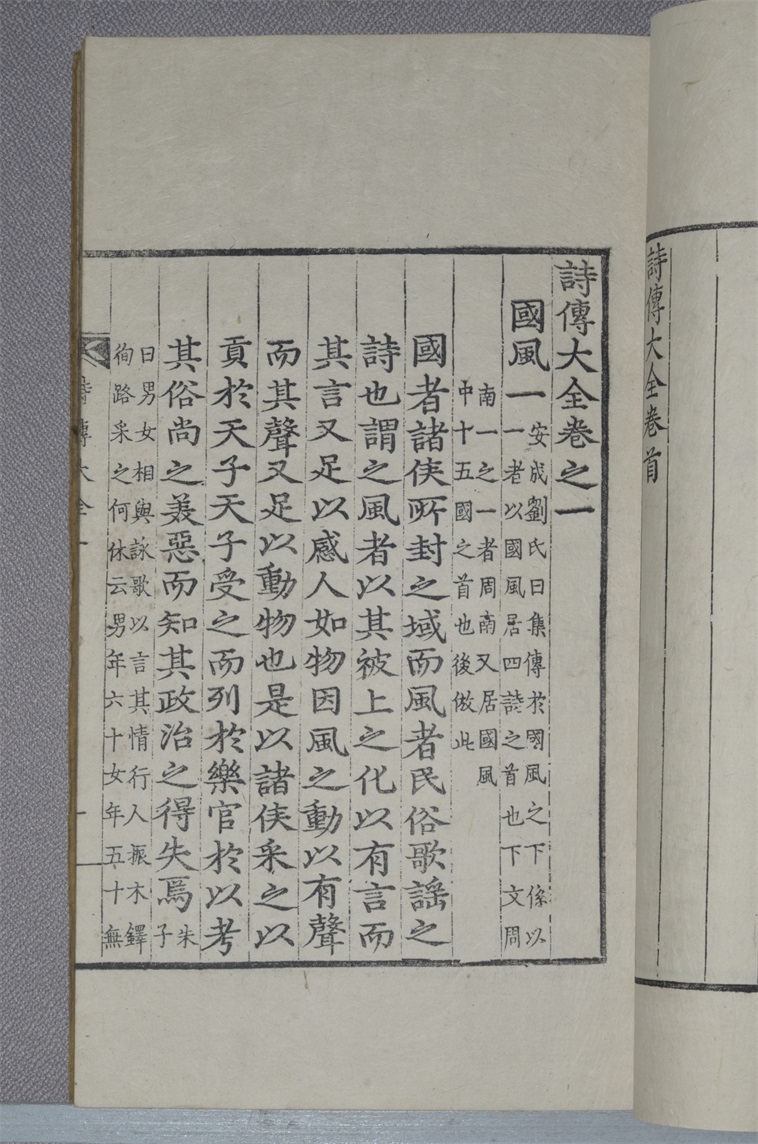 詩傳大全卷首
詩傳大全卷之一
國風一
安成劉氏曰集傳於國風之下係以
一者以國風居四詩之首也下文周
南一之一者周南又居國風
中十五國之首也後倣此
國者諸侯所封之域而風者民俗歌謡之
詩也謂之風者以其被上之化以有言而
其言又足以感人如物因風之動以有聲
而其聲又足以動物也是以諸侯采之以
貢於天子天子受之而列於樂官於以考
其俗尚之美惡而知其政治之得失焉
朱
子
曰男女相與詠歌以言其情行人振木鐸
徇路采之何休云男年六十女年五十無
詩傳大全一
一